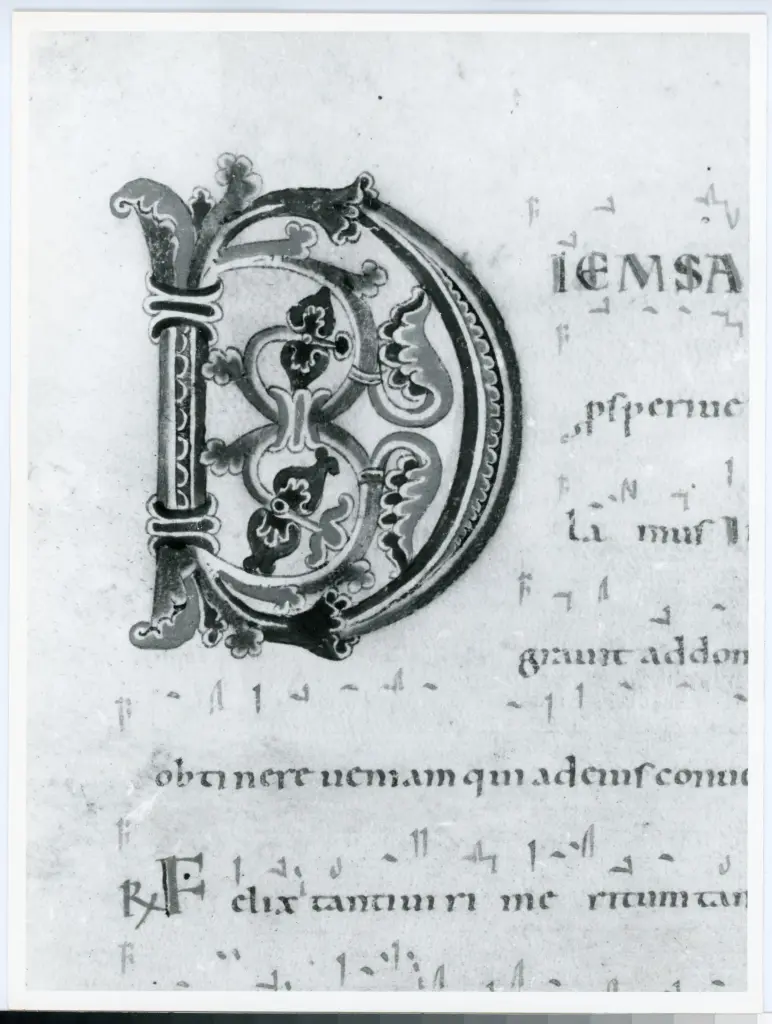 DIEM SA
psperiue
la mus
grauit ad don
obtinere ueniam qui ad eius conue
R F elix tanti uiri me ritum tan